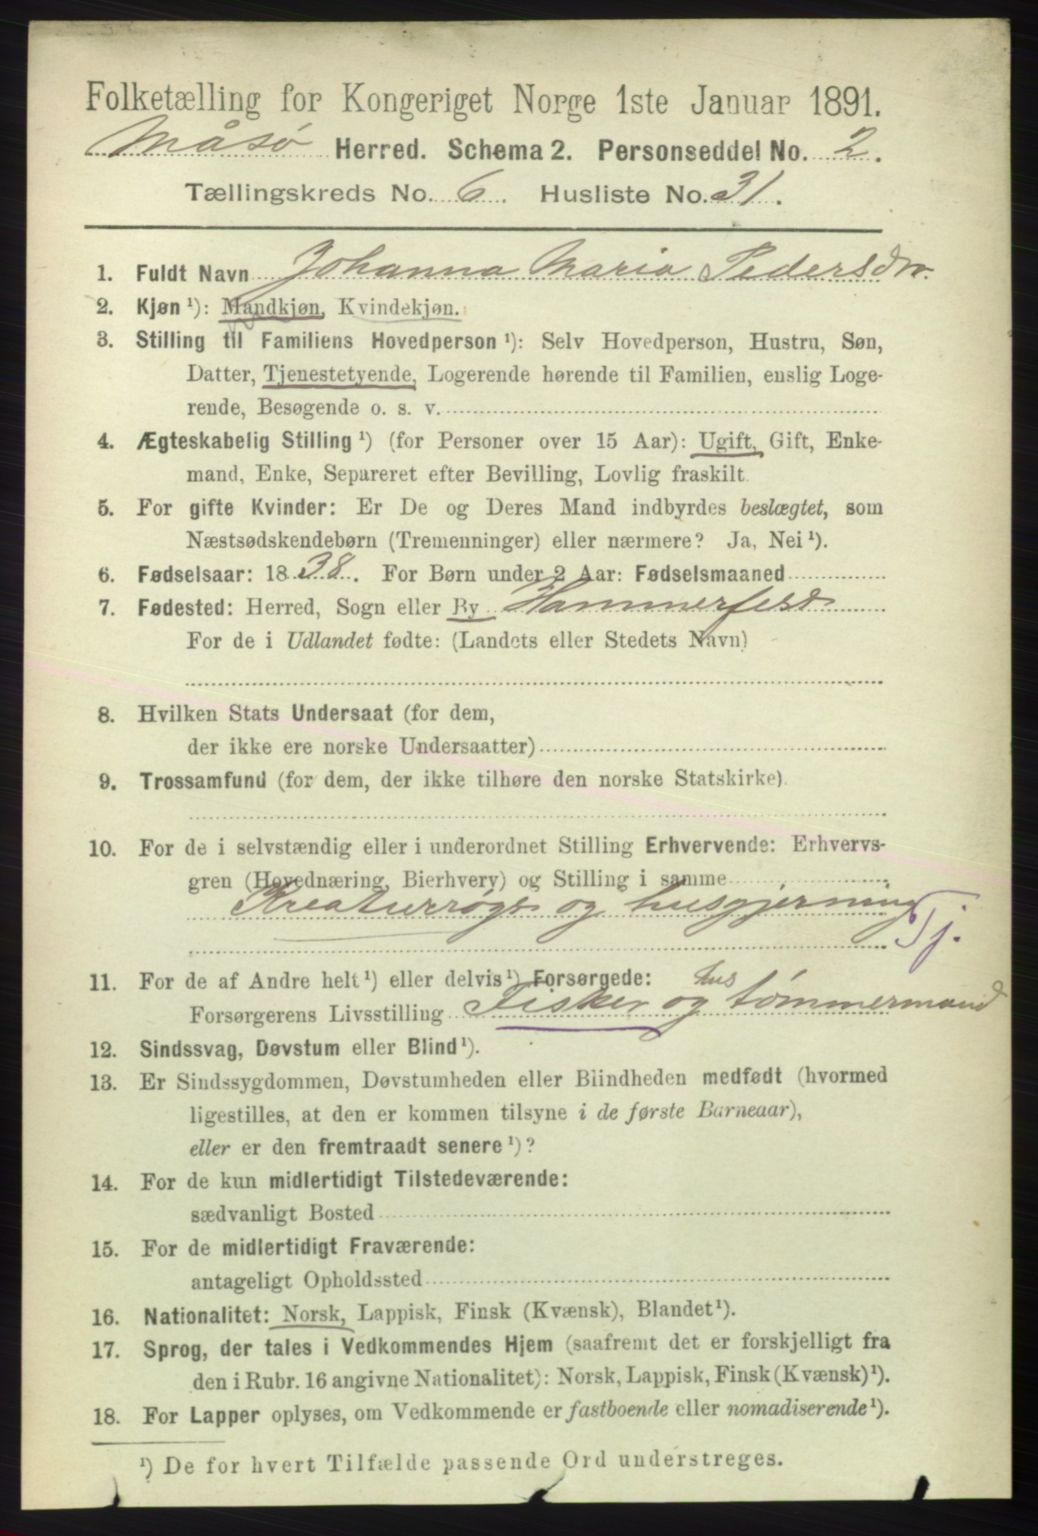 Folketælling for Kongeriget Norge 1ste Januar 1891.
Måsø Herred. Schema 2. Personseddel No. 2.
Tællingskreds No. 6. Husliste No. 31.
1. Fuldt Navn Johanna Maria Pedersdtr.
2. Kjøn ¹): Mandkjøn, Kvindekjøn.
3. Stilling til Familiens Hovedperson ¹): Selv Hovedperson, Hustru, Søn,
Datter, Tjenestetyende, Logerende hørende til Familien, enslig Loge-
rende, Besøgende o. s. v.
4. Ægteskabelig Stilling ¹) (for Personer over 15 Aar): Ugift, Gift, Enke-
mand, Enke, Separeret efter Bevilling, Lovlig fraskilt.
5. For gifte Kvinder: Er De og Deres Mand indbyrdes beslægtet, som
Næstsødskendebørn (Tremenninger) eller nærmere? Ja, Nei ¹).
6. Fødselsaar: 1838. For Børn under 2 Aar: Fødselsmaaned
7. Fødested: Herred, Sogn eller By Hammerfest
For de i Udlandet fødte: (Landets eller Stedets Navn)
8. Hvilken Stats Undersaat (for dem,
der ikke ere norske Undersaatter)
9. Trossamfund (for dem, der ikke tilhøre den norske Statskirke).
10. For de i selvstændig eller i underordnet Stilling Erhvervende: Erhvervs-
gren (Hovednæring, Bierhverv) og Stilling i samme
Kreaturrøgt og husgjerning
Tj.
11. For de af Andre helt ¹) eller delvis ¹) Forsørgede:
Forsørgerens Livsstilling Fisker og hustømmermand
12. Sindssvag, Døvstum eller Blind ¹).
13. Er Sindssygdommen, Døvstumheden eller Blindheden medfødt (hvormed
ligestilles, at den er kommen tilsyne i de første Barneaar),
eller er den fremtraadt senere ¹)?
14. For de kun midlertidigt Tilstedeværende:
sædvanligt Bosted
15. For de midlertidigt Fraværende:
antageligt Opholdssted
16. Nationalitet: Norsk, Lappisk, Finsk (Kvænsk), Blandet ¹).
17. Sprog, der tales i Vedkommendes Hjem (saafremt det er forskjelligt fra
den i Rubr. 16 angivne Nationalitet): Norsk, Lappisk, Finsk (Kvænsk) ¹).
18. For Lapper oplyses, om Vedkommende er fastboende eller nomadiserende ¹).
¹) De for hvert Tilfælde passende Ord understreges.